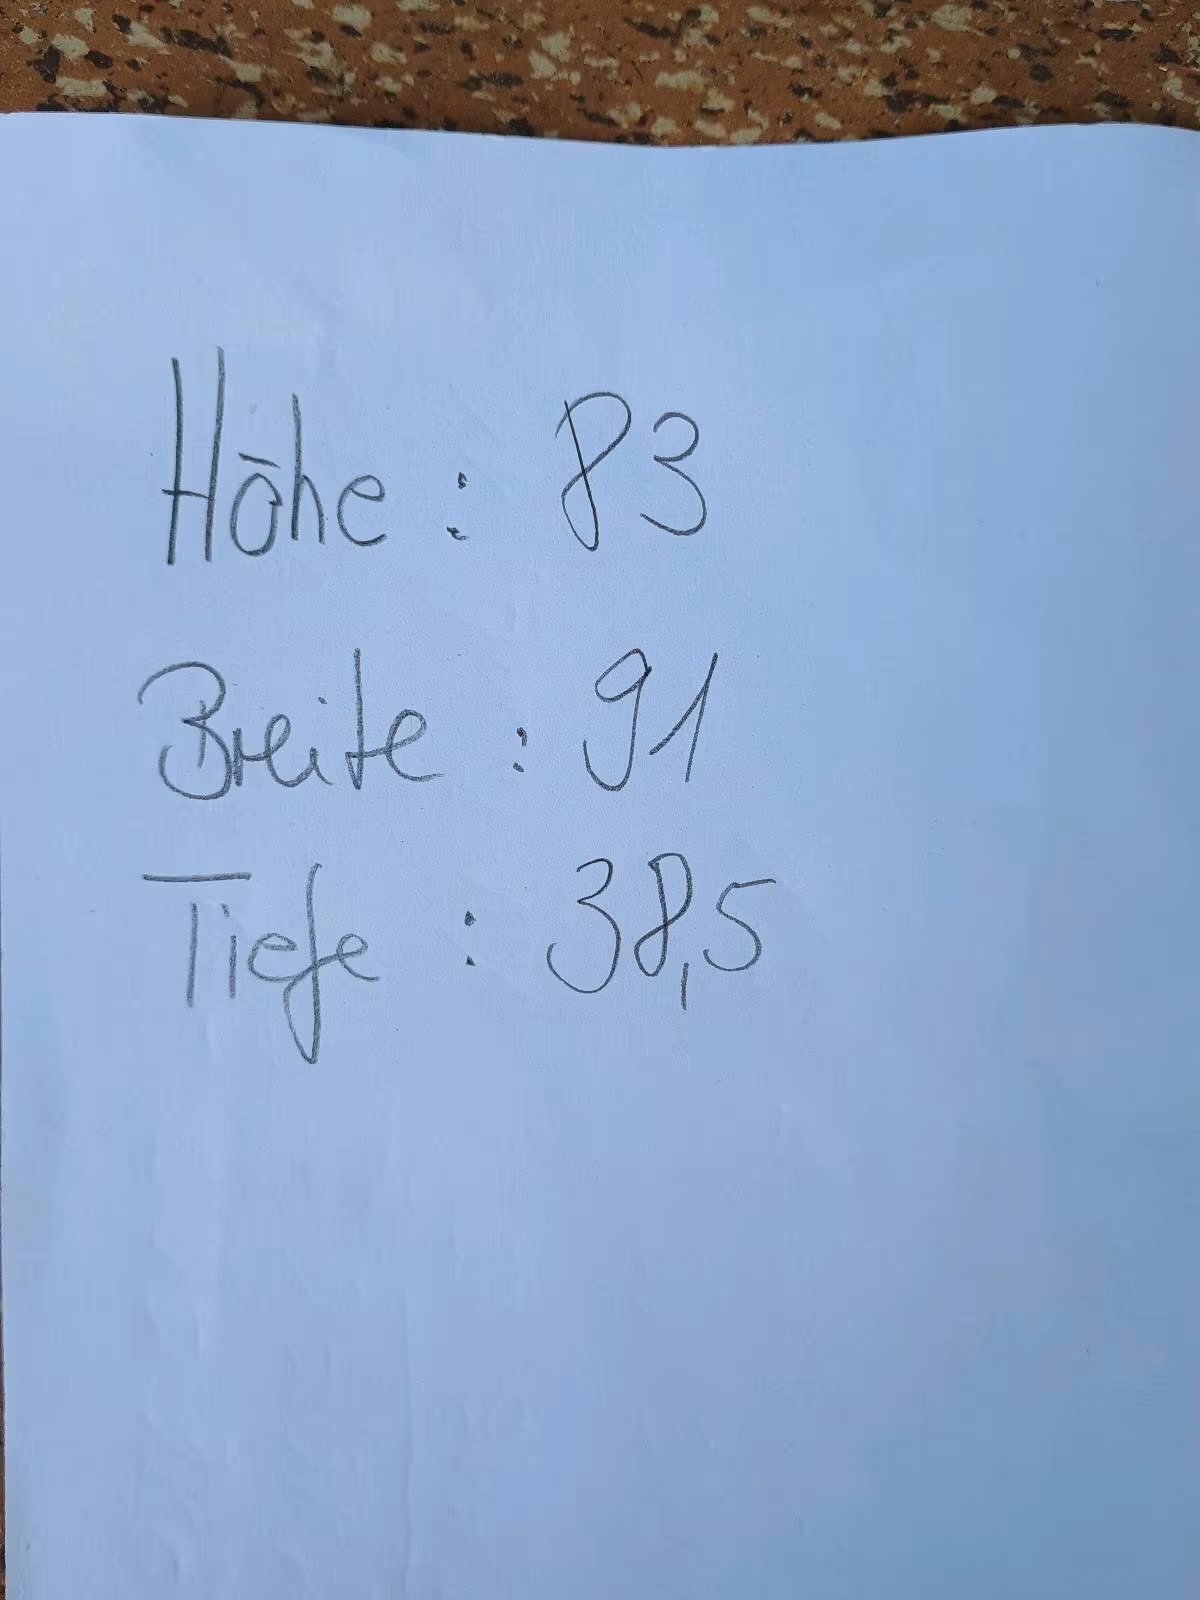 Höhe : 83
Breite : 91
Tiefe : 38,5